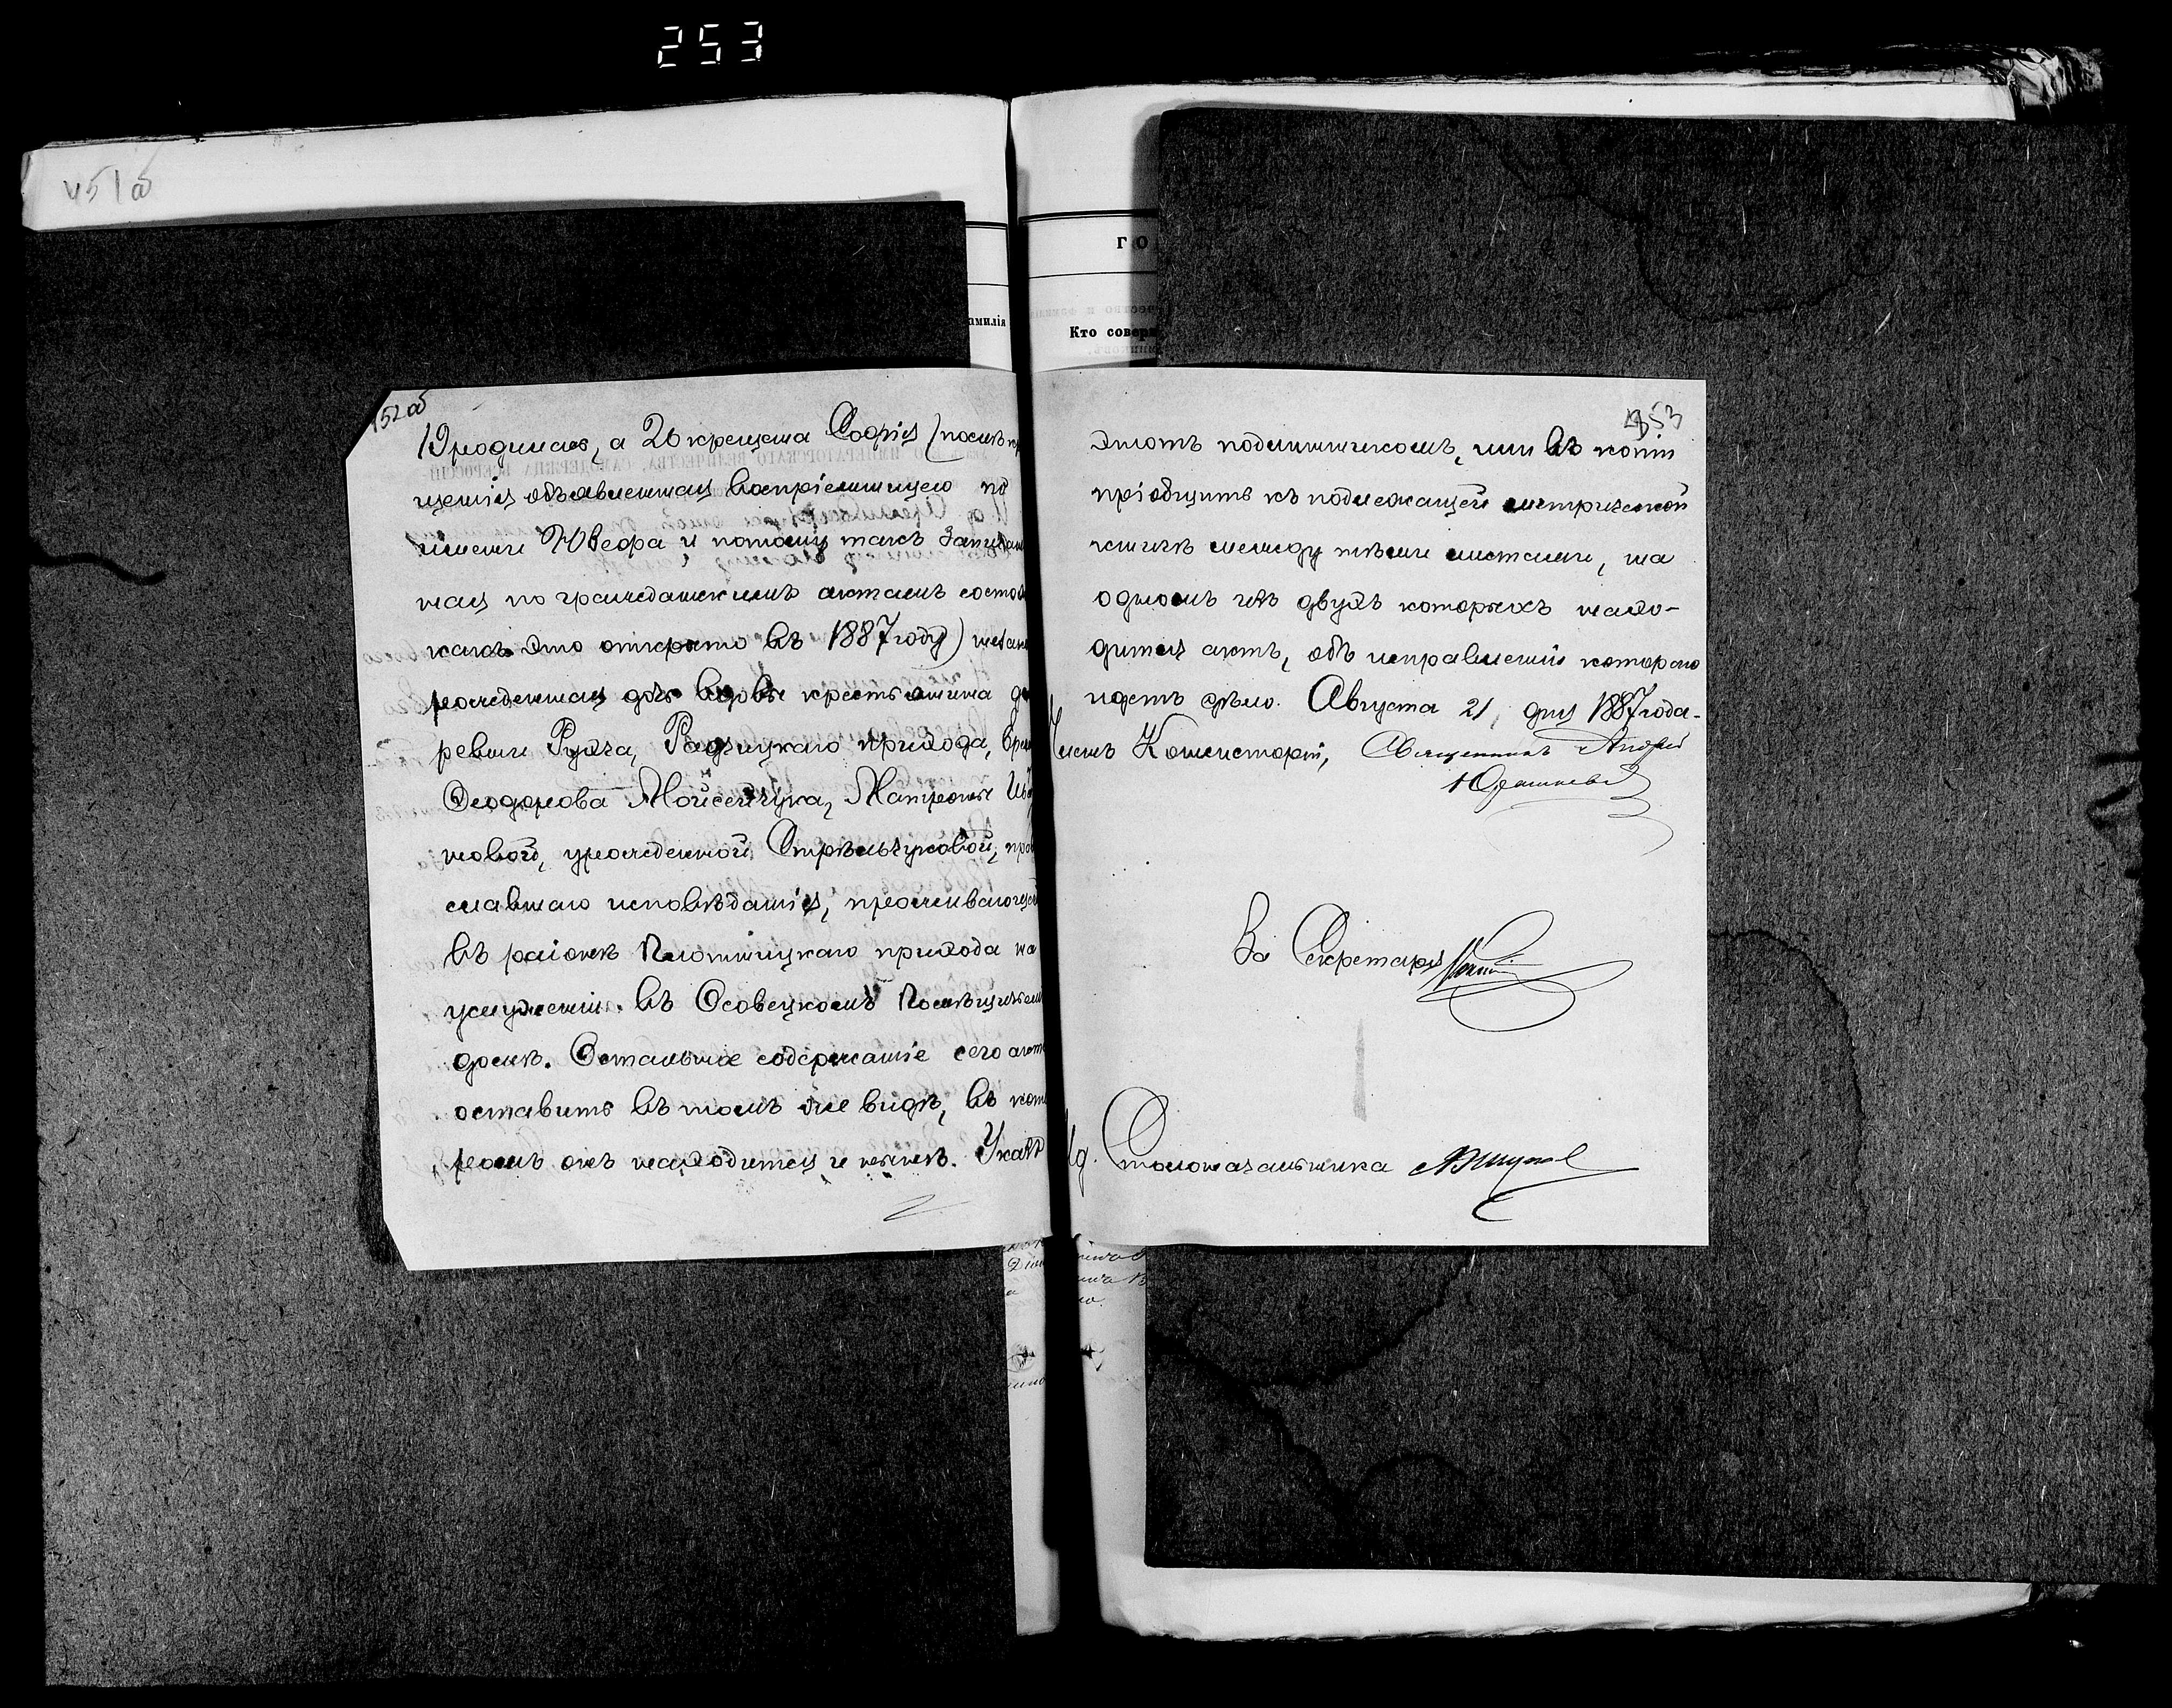 253
451об
амилія
ГО
Кто соверш
452об
19 родилась, а 26 крещена Софія (послѣ кр
щенія объявленная воспріемницею по
имени Юзефа и потому такъ записан
ная по гражданскимъ актамъ состоя
какъ это открыто въ 1887 году) незако
рожденная дочь вдовы крестьянина де
ревни Рухча, Радчицкаго прихода,
Ѳеодорова Мойсейчука, Матроны Ива
новой, урожденной Стрѣльчуковой, пра
славнаго исповѣданія, проживающей
въ раіонѣ Плотницкаго прихода на
услуженіи въ Осовецкомъ помѣщичьем
домѣ. Остальное содержаніе сего акт
оставить въ томъ же видѣ, въ кото
ромъ онъ находится и нынѣ. Указъ
453
этотъ подлинникомъ, или въ копіи
пріобщить къ подлежащей метрической
книгѣ между тѣми листами, на
одномъ изъ двухъ которыхъ нахо-
дится актъ, объ исправленіи котораго
идетъ дѣло. Августа 21, дня 1887 года.
Членъ Консисторіи, Священникъ Андрей
Юрашкевичъ
За Секретаря
Столоначальника